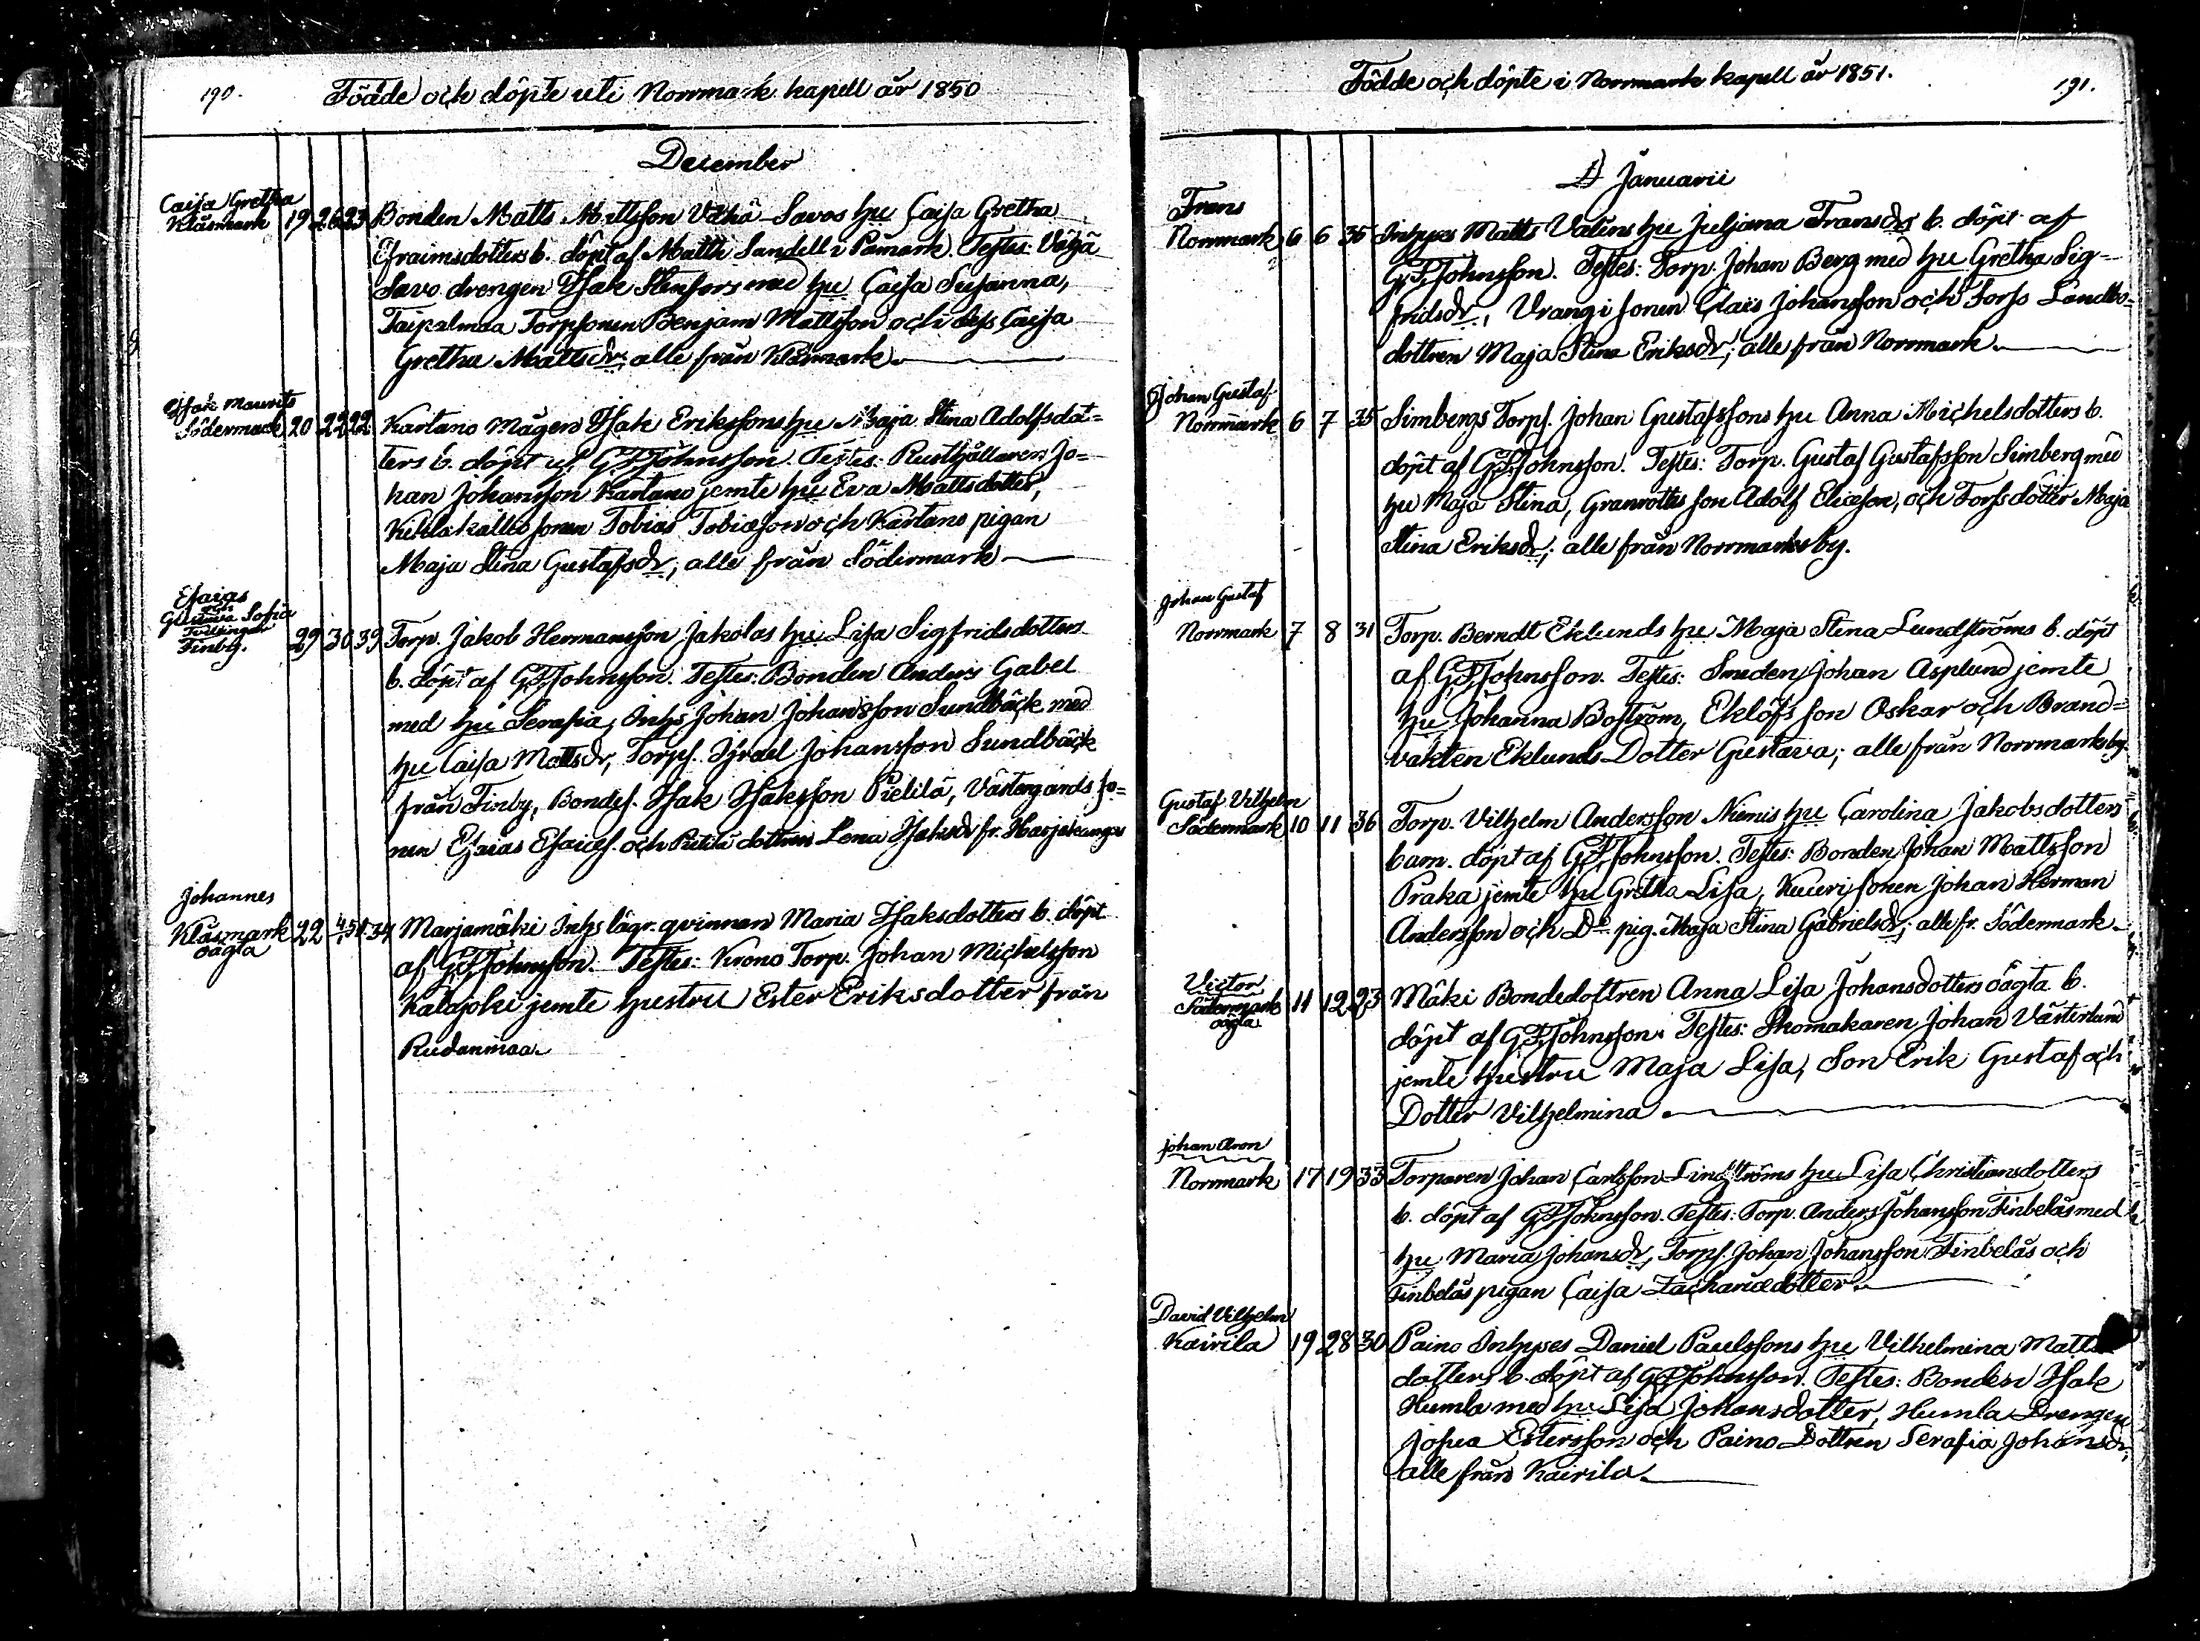 190.
Födde och döpte uti Norrmark kapell år 1850
December
Caisa Gretha
Klåsmark 19 26 23 Bonden Matts Mattsson Vähä Savos hu Caisa Gretha
Efraimsdotters b. döpt af Matth Sandell i Påmark. Testes: Vähä
Savo drengen Isak Stenfors med hu Caisa Susanna,
Taipalmaa Torpsonen Benjam Mattsson och dess Caisa
Gretha Mattsdr; alle från Klåsmark.
Isak Maurits
Södermark 20 22 22 Kartano Mågen Isak Erikssons hu Maja Stina Adolfsdot-
ters b. döpt af G F Johnsson. Testes: Rusthållaren Jo-
han Johansson Kartano jemte hu Eva Mattsdotter,
sonen Tobias Tobiason och Kartano pigan
Maja Stina Gustafsdr, alle från Södermark
Esaias
och
Gustava Sofia
Tvillingar
Finby. 29 30 39 Torp. Jakob Hermansson Jakolas hu Lisa Sigfridsdotters
b. döpt af G F Johnsson. Testes: Bonden Anders Gabel
med hu Serafia, Inhs Johan Johansson Sundbäck med
hu Caisa Mattsdr, Torps. Israel Johansson Sundbäck
från Finby, Bondes. Isak Isaksson Pietilä, Västergårds so-
nen Esaias Esaies. och Pietilä dottren Lena Isaksdr fr. Harjakangas
Johannes
Klåsmark
oägta 22 4/51 34 Marjamäki Inhs lägr. qvinnan Maria Isaksdotters b. döpt
af G F Johnsson. Testes: Krono Torp. Johan Michelsson
Katajoki jemte hustru Ester Eriksdotter från
Rudanmaa
Födde och döpte i Norrmark kapell år 1851.
191.
Januarii
Frans
Norrmark 6 6 35 Inhyses Matts Valins hu Juljana Fransdrs b. döpt af
G F Johnsson. Testes: Torp. Johan Berg med hu Gretha Sig-
fridsdr, Vrangi sonen Claës Johansson och Torfs Landbo-
dottren Maja Stina Eriksdr; alle från Norrmark.
Johan Gustaf
Norrmark 6 7 35 Simbergs Torps. Johan Gustafssons hu Anna Michelsdotters b.
döpt af G F Johnsson. Testes: Torp. Gustaf Gustafsson Simberg med
hu Maja Stina, Granrottes son Adolf Eliæson, och Torfs dotter Maja
Stina Eriksdr; alle från Norrmarks by.
Johan Gustaf
Norrmark 7 8 31 Torp. Berndt Eklunds hu Maja Stena Lundströms b. döpt
af G F Johnsson. Testes: Smeden Johan Asplund jemte
hu Johanna Boström, Eklöfs son Oskar och Brand-
vakten Eklunds Dotter Gustava; alle från Norrmarks by.
Gustaf Vilhelm
Södermark 10 11 36 Torp. Vilhelm Andersson Niemis hu Carolina Jakobsdotters
barn. döpt af G F Johnsson. Testes: Bonden Johan Mattsson
Praka jemte hu Gretha Lisa, Kuuri sonen Johan Herman
Andersson och Do pig. Maja Stina Gabrielsdr; alle fr. Södermark.
Victor
Södermark
oägta 11 12 23 Mäki Bondedottren Anna Lisa Johansdotters oägta b.
döpt af G F Johnsson. Testes: Skomakaren Johan Västerlund
jemte hustru Maja Lisa, Son Erik Gustaf och
Dotter Vilhelmina
Johan Aron
Norrmark 17 19 33 Torparen Johan Carlsson Lindströms hu Lisa Christiansdotters
b. döpt af G F Johnsson. Testes: Torp. Anders Johansson Finbelås med
hu Maria Johansdr, Torps. Johan Johansson Finbelås och
Finbelås pigan Caisa Zachariædotter.
David Vilhelm
Kairila 19 28 30 Paino Inhyses Daniel Paulssons hu Vilhelmina Matts
dotters b. döpt af G F Johnsson. Testes: Bonden Isak
Humla med hu Lisa Johansdotter, Humla Drengen
Josua Estersson och Paino Dottren Serafia Johansdr,
alle från Kairila.